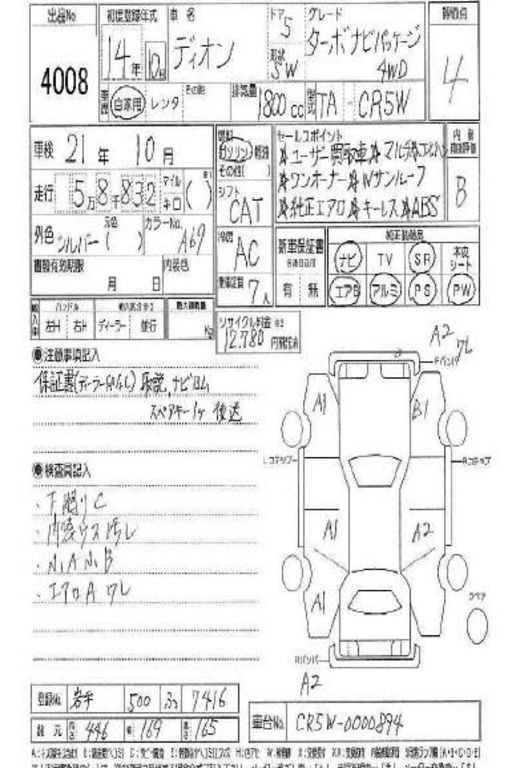 出品No 4008
初度登録年式 14年 10月
車名 ディオン
ドア 5
形状 SW
グレード ターボナビパッケージ 4WD
評価点 4
車歴 自家用 レンタ その他
排気量 1800cc 型式 TA - CR5W
車検 21年 10月
燃料 ガソリン 軽油 その他( )
セールスポイント
☆ユーザー買取車☆マルチ
☆ワンオーナー☆Wサンルーフ
☆純正エアロ☆キーレス☆ABS
内装 B
走行 5万8千832 マイル キロ ( )
シフト CAT
外色 シルバー 元色 ( ) カラーNo. A69
冷房 AC
書類有効期限 月 日 内装色
乗車定員 7人
新車保証書 有 無
純正装備品
ナビ TV SR 本皮シート
エアB アルミ PS PW
輸入車 ハンドル 左H 右H ディーラー 並行 最大積載量 Kg
リサイクル料金 12,780 円預託済
●注意事項記入
保証書(ディーラー印なし) 取説、ナビロム
スペアキー1ヶ 後送
●検査員記入
・下廻りC
・内装ウス汚レ
・小A 小B
・エアロA ワレ
A2 ワレ
Fバンパ
A1 B1
Lコテップ Rコテップ
A1 A2
A1
スペア
Rバンパ
A2
登録No. 岩手 500 ふ 7416
諸元 長さ 446 幅 169 高さ 165
車台No. CR5W-0000894